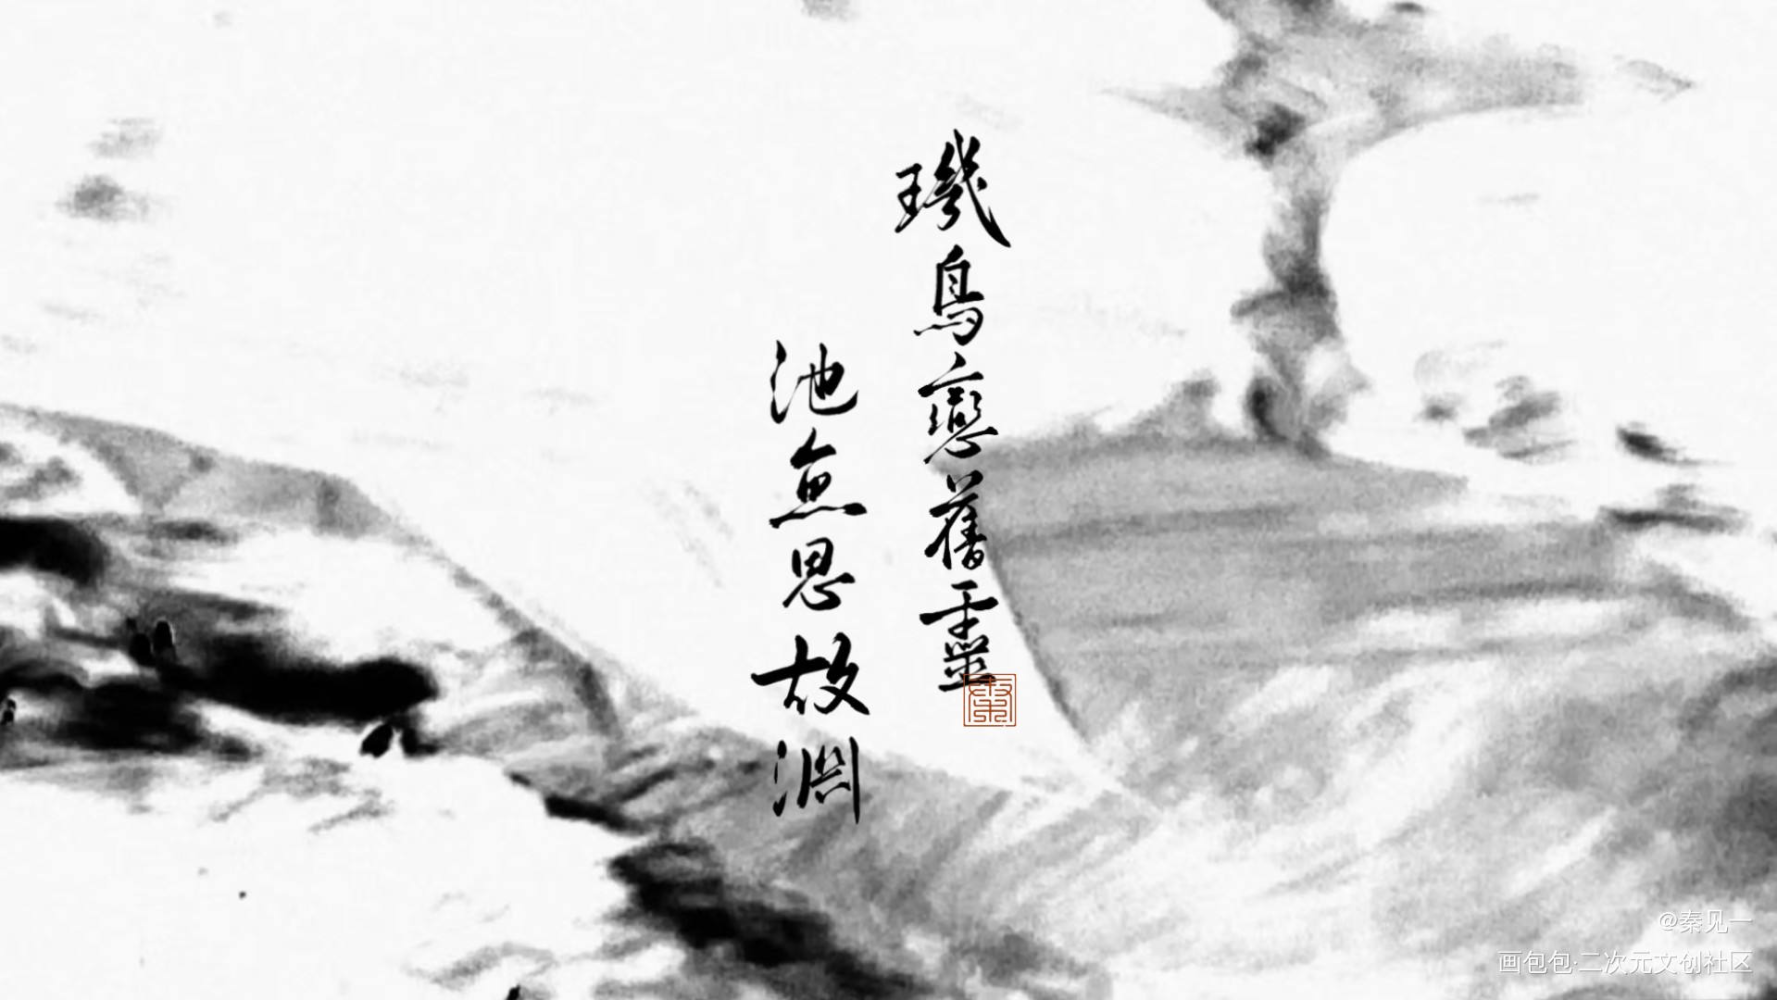 璣鳥戀舊靈
池魚思故淵
@秦见一
画包包·二次元文创社区